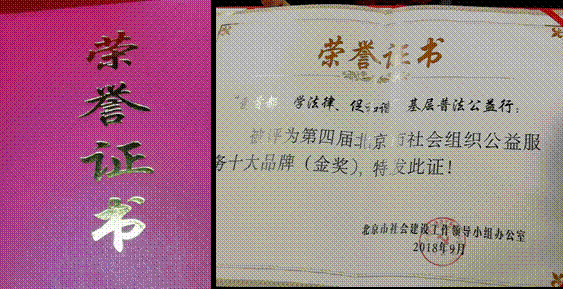 荣誉证书
荣誉证书
学法律、促和谐"基层普法公益行:
被评为第四届北京市社会组织公益服
务十大品牌(金奖),特发此证!
北京市社会建设工作领导小组办公室
2018年9月